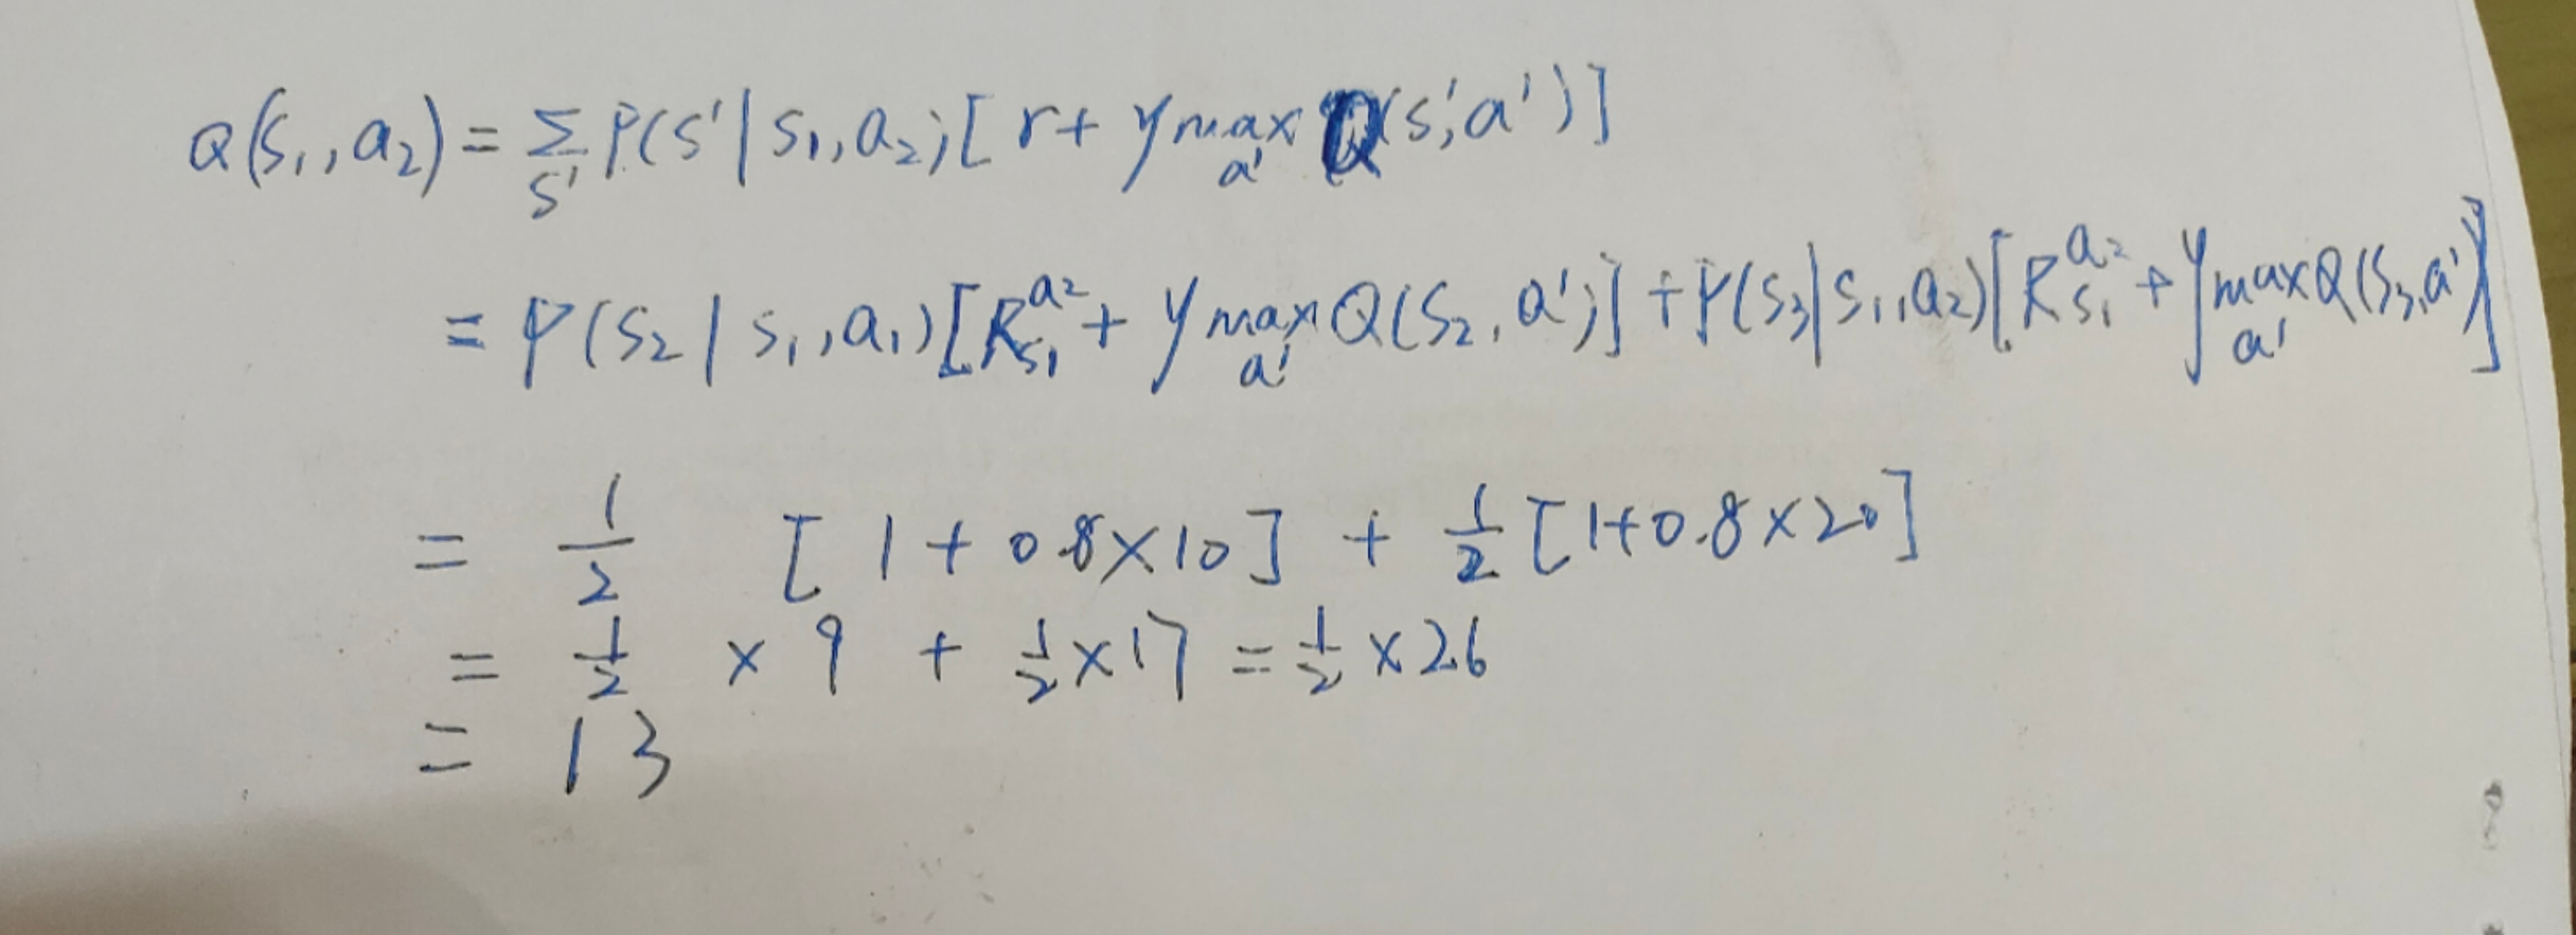 Q(s₁, a₂) = Σ_{s'} P(s' | s₁, a₂) [ r + γ max_{a'} Q(s', a') ]
= P(s₂ | s₁, a₁) [ R_{s₁}^{a₂} + γ max_{a'} Q(s₂, a') ] + P(s₃ | s₁, a₂) [ R_{s₁}^{a₂} + γ max_{a'} Q(s₃, a') ]
= 1/2 [ 1 + 0.8 × 10 ] + 1/2 [ 1 + 0.8 × 20 ]
= 1/2 × 9 + 1/2 × 17 = 1/2 × 26
= 13